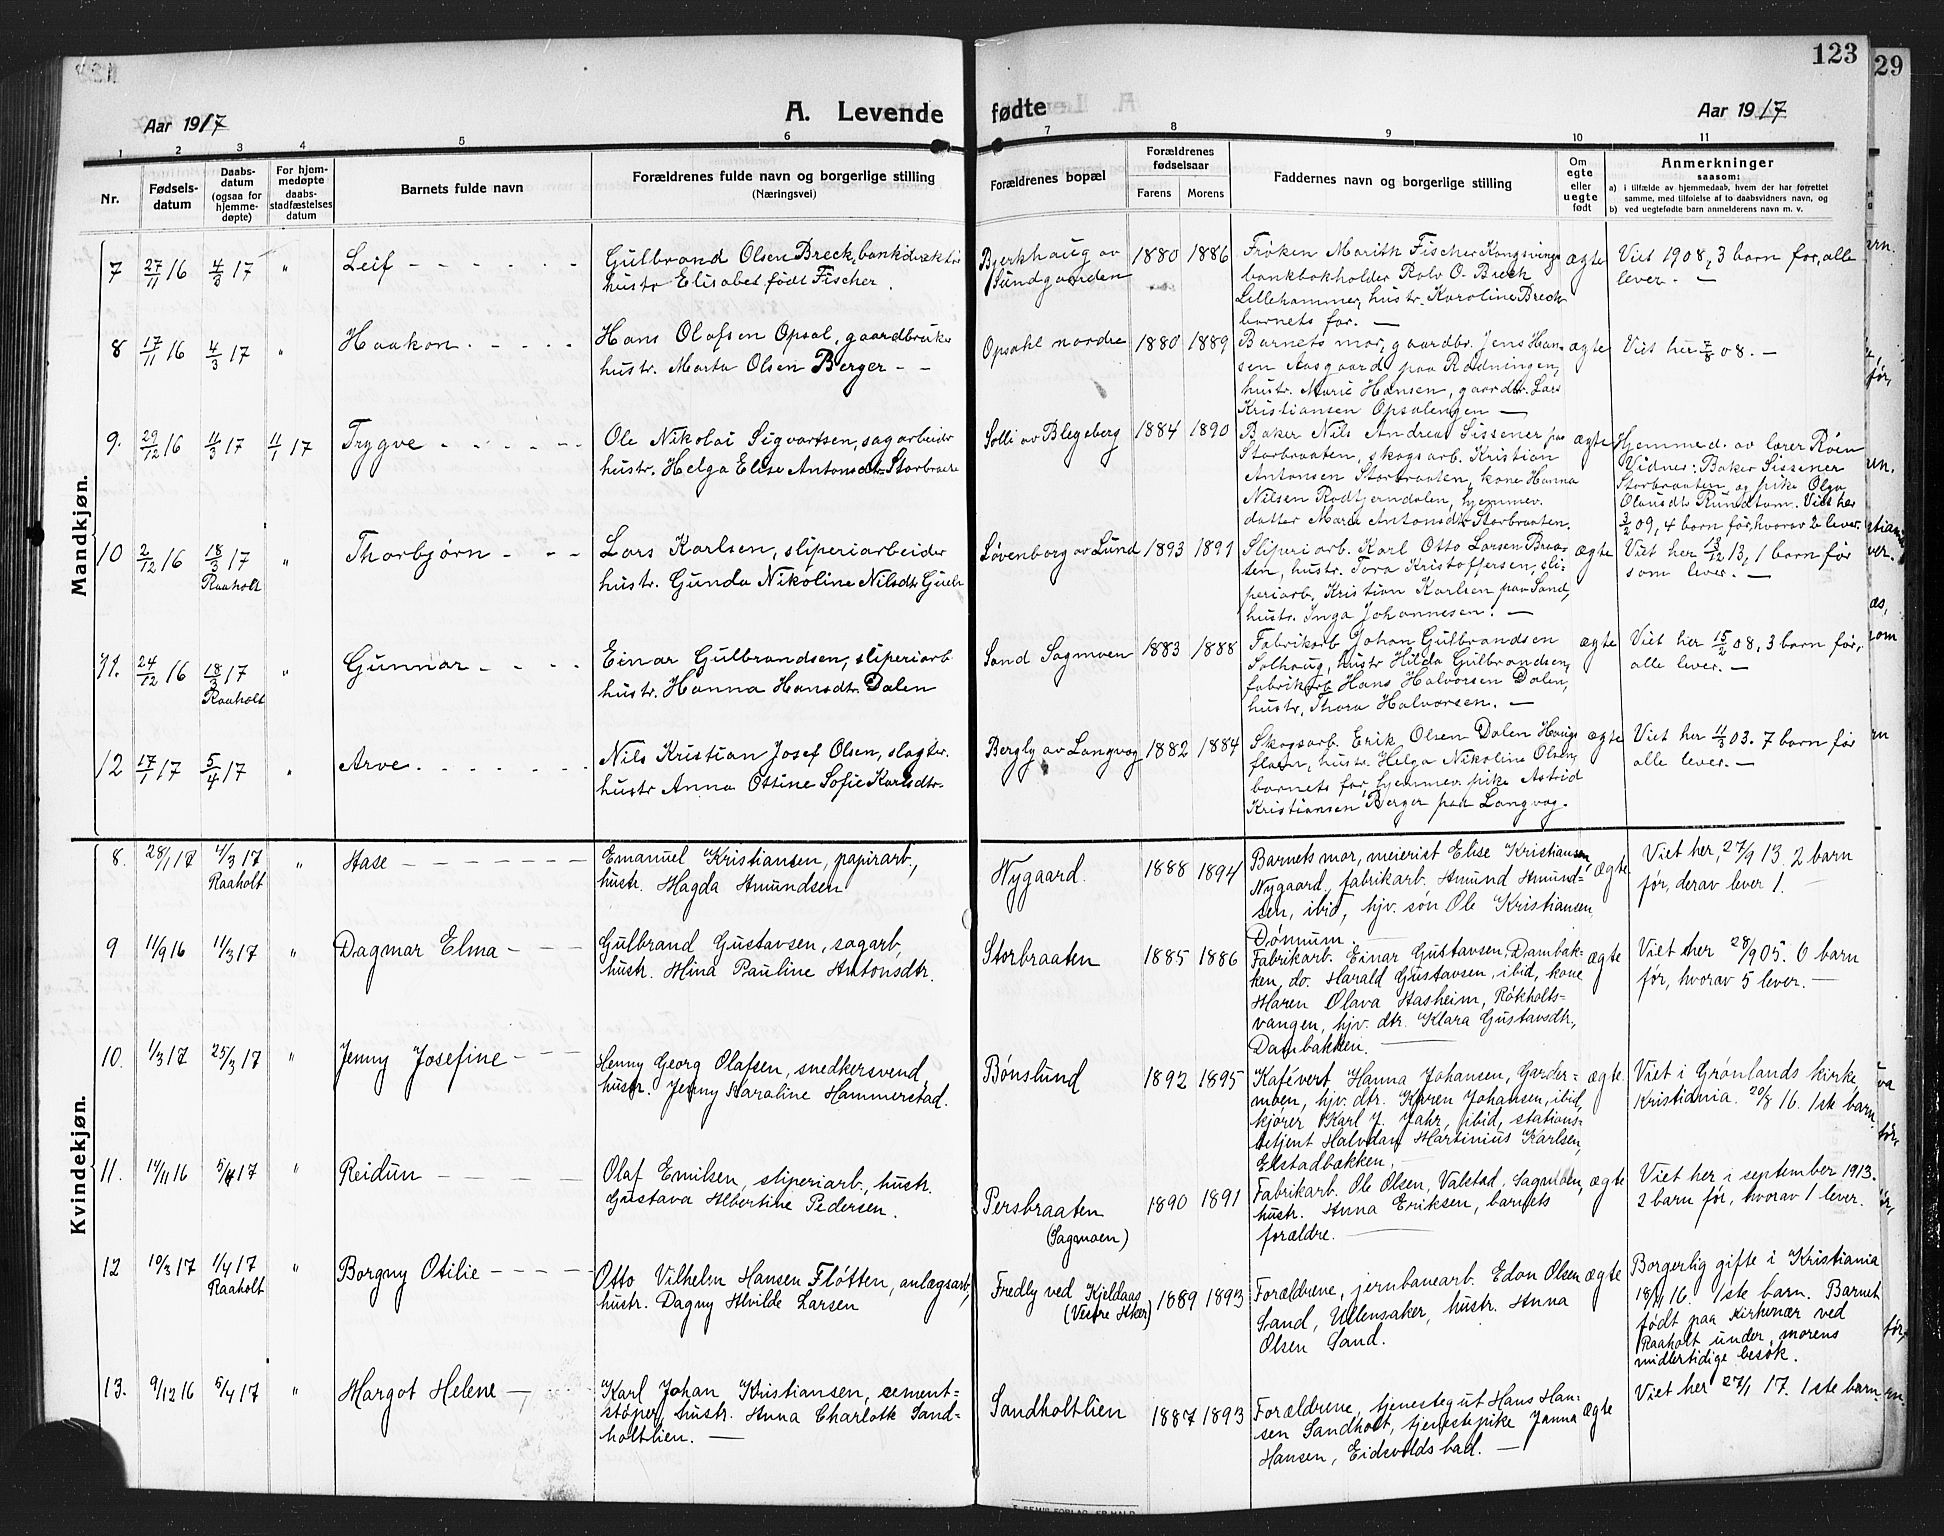 123
29
Aar 1917
A. Levende fødte
Aar 1917
1 2 3 4 5 6 7 8 9 10 11
Nr.
Fødsels-
datum
Daabs-
datum
(ogsaa for
hjemme-
døpte)
For hjem-
medøpte
daabs-
stadfæstelses
datum
Barnets fulde navn
Forældrenes fulde navn og borgerlige stilling
(Næringsvei)
Forældrenes bopæl
Forældrenes
fødselsaar
Farens Morens
Faddernes navn og borgerlige stilling
Om
egte
eller
uegte
født
Anmerkninger
saasom:
a) i tilfælde av hjemmedaab, hvem der har forrettet
samme, med tilføielse af to daabsvidners navn, og
b) ved uegtefødte barn anmelderens navn m. v.
Mandkjøn.
7 27/11 16 4/3 17 " Leif
Gulbrand Olsen Breck, bankdirektør
hustr Elisabet født Fischer.
Bjerkhaug av
Sundgaarden
1880 1886
Frøken Marith Fischer Kongsvinger
bankbokholder Rolv O. Breck
Lillehammer, hustr. Karoline Breck
barnets far. —
ægte
Viet 1908, 3 barn før, alle
lever. —
8 17/11 16 4/3 17 " Haakon
Hans Olafsen Opsal, gaardbruker
hustr. Marta Olsen Berger
Opsahl nordre
1880 1889
Barnets mor, gaardbr. Jens Han-
sen Aasgaard paa Rødningen,
hustr. Marie Hansen, gaardbr. Lars
Kristiansen Opsalengen —
ægte
Viet her 7/8 08. —
9. 29/12 16 4/3 17 4/1 17 Trygve
Ole Nikolai Sigvartsen, sagarbeider
hustr. Helga Elise Antonsdtr. Storbraate
Solli av Blegeberg
1884 1890
Baker Nils Andreas Sissener paa
Storbraaten, skogsarb. Kristian
Antonsen Storbraaten, kone Hanna
Nilsen Rødtjerndalen, hjemmev.
datter Marie Antonsdtr Storbraaten.
ægte
Hjemmed. av lærer Røen
Vidner: Baker Sissener
Storbraaten og pike Olga
Olausdtr Rundtom. Viet her
3/2 09, 4 barn før, hvorav 2 lever.
10 2/12 16 18/3 17 " Thorbjørn
Raaholt
Lars Karlsen, sliperiarbeider
hustr. Gunda Nikoline Nilsdtr
Løvenborg av Lund
1893 1891
Sliperiarb. Karl Otto Larsen Braa-
ten, hustr. Tora Kristoffersen, sli-
periarb. Kristian Karlsen paa Sand,
hustr. Inga Johannesen. —
ægte
Viet her 13/12 13, 1 barn før
som lever. —
11. 24/12 16 18/3 17 " Gunnar
Raaholt
Einar Gulbrandsen, sliperiarb
hustr. Hanna Hansdtr. Dalen
Sand Sagmoen
1883 1888
Fabrikarb Johan Gulbrandsen
Solhaug, hustr Hilda Gulbrandsen,
fabrikarb Hans Halvorsen Dalen,
hustr. Thora Halvorsen. —
ægte
Viet her 15/2 08, 3 barn før,
alle lever. —
12 17/1 17 5/4 17 " Arve
Nils Kristian Josef Olsen, slagter.
hustr Anna Ottine Sofie Karlsdtr.
Bergly av Langvag
1882 1884
Skogsarb. Erik Olsen Dalen Haugs-
flaen, hustr. Helga Nikoline Olsen,
barnets far, hjemmev. pike Astrid
Kristiansen Berger paa Langvag.
ægte
Viet her 4/3 03. 7 barn før
alle lever. —
Kvindekjøn.
8. 28/1 17 4/3 17 " Aase
Raaholt
Emanuel Kristiansen, papirarb.,
hustr. Magda Amundsen
Nygaard.
1888 1894
Barnets mor, meierist Elise Kristiansen,
Nygaard, fabrikarb. Amund Amund-
sen, ibid, hjv. søn Ole Kristiansen
Dønnum. —
ægte
Viet her, 27/9 13. 2 barn
før, derav lever 1. —
9 11/9 16 11/3 17 " Dagmar Elma
Gulbrand Gustavsen, sagarb,
hustr. Mina Pauline Antonsdtr.
Storbraaten
1885 1886
Fabrikarb. Einar Gustavsen, Dambak-
ken, do. Harald Gustavsen, ibid, kone
Maren Olava Aasheim, Røkholts-
vangen, hjv. dtr. Klara Gustavsdtr,
Dambakken. —
ægte
Viet her 28/9 05. 6 barn
før, hvorav 5 lever. —
10. 1/3 17 25/3 17 " Jenny Josefine
Henny Georg Olafsen, snedkersvend,
hustr. Jenny Karoline Hammerstad.
Bønslund
1892 1895
Kafévert Hanna Johansen, Garder-
moen, hjv. dtr. Karen Johansen, ibid,
kjører Karl J. Jahr, ibid, stations-
betjent Halvdan Martinius Karlsen,
Elstadbakken. —
ægte
Viet i Grønlands kirke
Kristiania 20/8 16. 1ste barn.
11. 14/11 16 5/4 17 " Reidun
Olaf Emilsen, sliperiarb., hustr.
Gustava Albertine Pedersen.
Persbraaten
(Sagmoen)
1890 1891
Fabrikarb. Ole Olsen, Valstad, Sagmoen,
hustr. Anna Eriksen, barnets
forældre. —
ægte
Viet her i september 1913.
2 barn før, hvorav 1 lever.
12 10/3 17 1/4 17 " Borgny Otilie
Raaholt
Otto Vilhelm Hansen Fløtten, anlægsarb,
hustr. Dagny Alvilde Larsen
Fredly ved Kjeldaas
(Vestre Aker)
1889 1893
Forældrene, jernbanearb. Edon Olsen
Sand, Ullensaker, hustr. Anna
Olsen Sand.
ægte
Borgerlig gifte i Kristiania
18/11 16. 1ste barn. Barnet
født paa Kirkenær ved
Raaholt under morens
midlertidige besøk.
13. 9/12 16 5/4 17 " Margot Helene
Karl Johan Kristiansen, cement-
støper, hustr. Anna Charlotte Sand-
holtlien. —
Sandholtlien
1887 1893
Forældrene, tjenestegut Hans Han-
sen Sandholt, tjenestepike Janna
Hansen, Eidsvolds bad. —
ægte
Viet her 27/1 17. 1ste barn